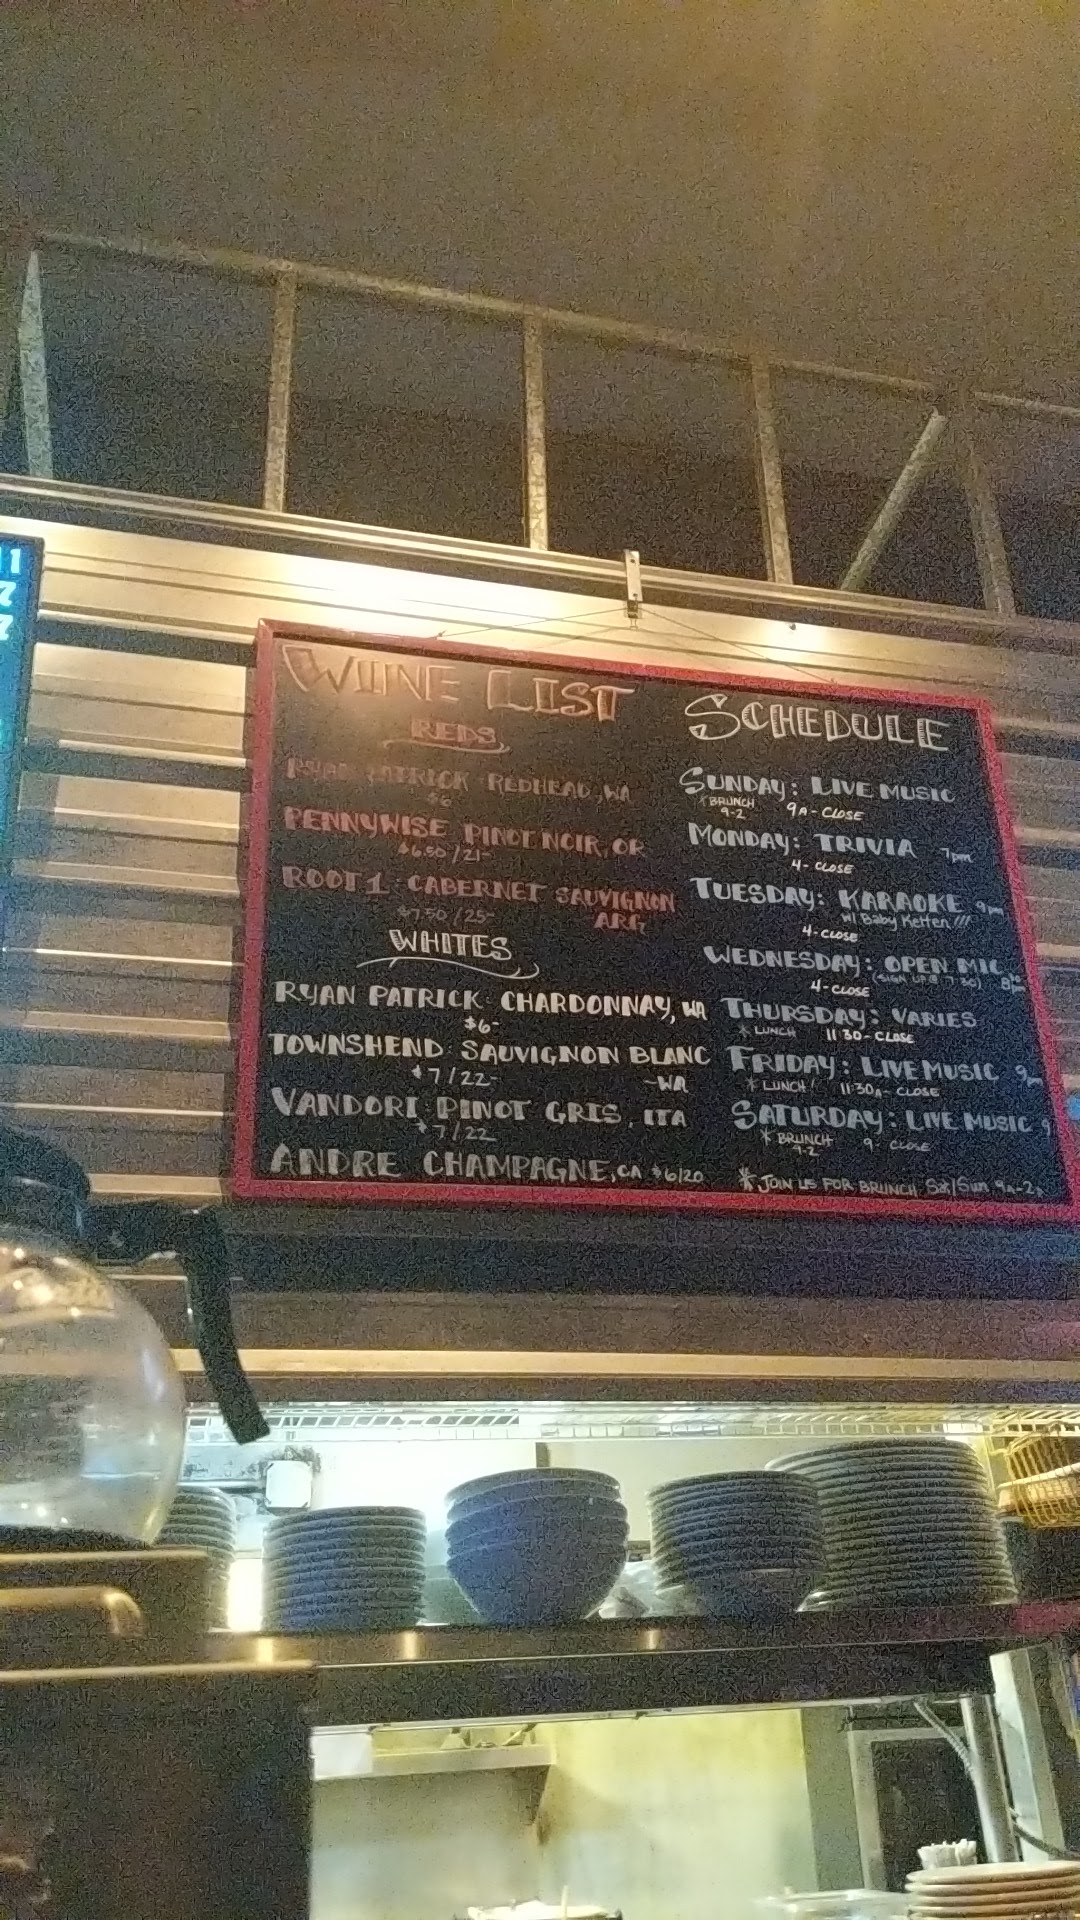 11
7
7
WINE LIST
REDS
RYAN PATRICK REDHEAD, WA
$6
PENNYWISE PINOT NOIR, OR
$6.50/21-
ROOT 1: CABERNET SAUVIGNON
$7.50/25- ARG
WHITES
RYAN PATRICK: CHARDONNAY, WA
$6-
TOWNSHEND: SAUVIGNON BLANC
$7/22- -WA
VANDORI: PINOT GRIS, ITA
$7/22
ANDRE CHAMPAGNE, CA $6/20
SCHEDULE
SUNDAY: LIVE MUSIC
*BRUNCH 9A-CLOSE
9-2
MONDAY: TRIVIA 7pm
4-CLOSE
TUESDAY: KARAOKE 9pm
w/ Baby Ketten!!!
4-CLOSE
WEDNESDAY: OPEN MIC 8pm
(SIGN UP @ 7:30)
4-CLOSE
THURSDAY: VARIES
*LUNCH 11:30-CLOSE
FRIDAY: LIVE MUSIC 9pm
*LUNCH! 11:30A-CLOSE
SATURDAY: LIVE MUSIC 9
*BRUNCH 9-CLOSE
9-2
*JOIN US FOR BRUNCH Sat/Sun 9A-2p